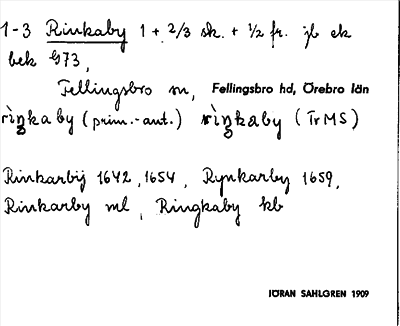 1-3 Rinkaby 1 + 2/3 sk. + 1/2 fr. jb ek
bek 973,
Fellingsbro sn, Fellingsbro hd, Örebro län
rìŋkaby (prim.-ant.) rìŋkaby (TrMS)
Rinkarbÿ 1642, 1654, Rynkarby 1659,
Rinkarby ml, Ringkaby kb
JÖRAN SAHLGREN 1909